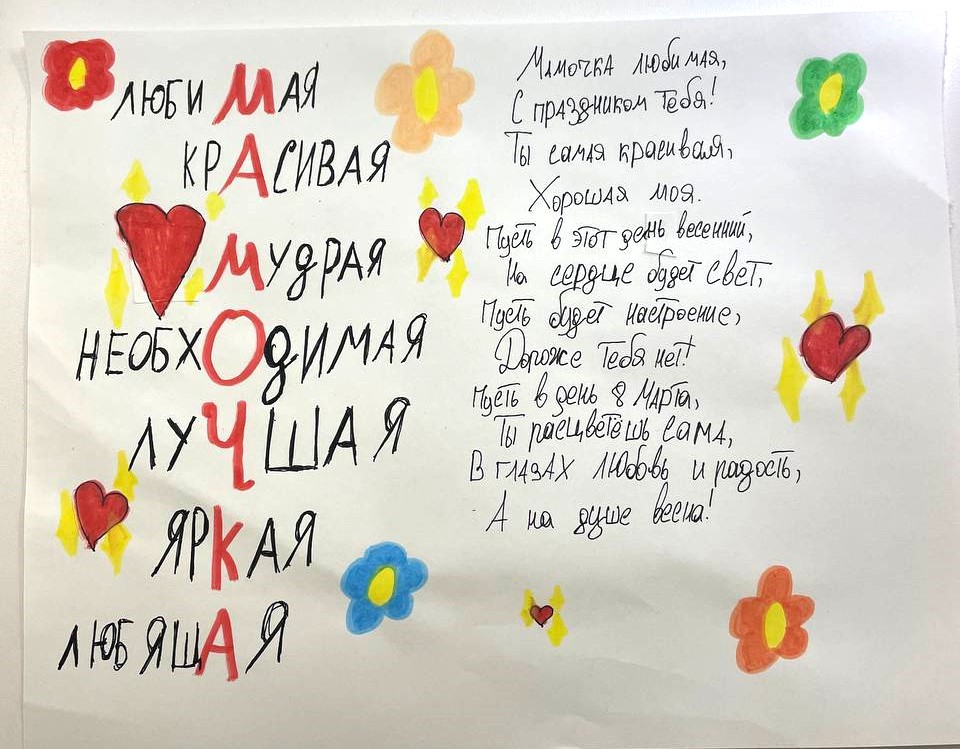 ЛЮБИМАЯ
КРАСИВАЯ
МУДРАЯ
НЕОБХОДИМАЯ
ЛУЧШАЯ
ЯРКАЯ
ЛЮБЯЩАЯ
Мамочка любимая,
С праздником Тебя!
Ты самая красивая,
Хорошая моя.
Пусть в этот день весенний,
На сердце будет свет,
Пусть будет настроение,
Дороже Тебя нет!
Пусть в день 8 Марта,
Ты расцветёшь сама,
В глазах любовь и радость,
А на душе весна!